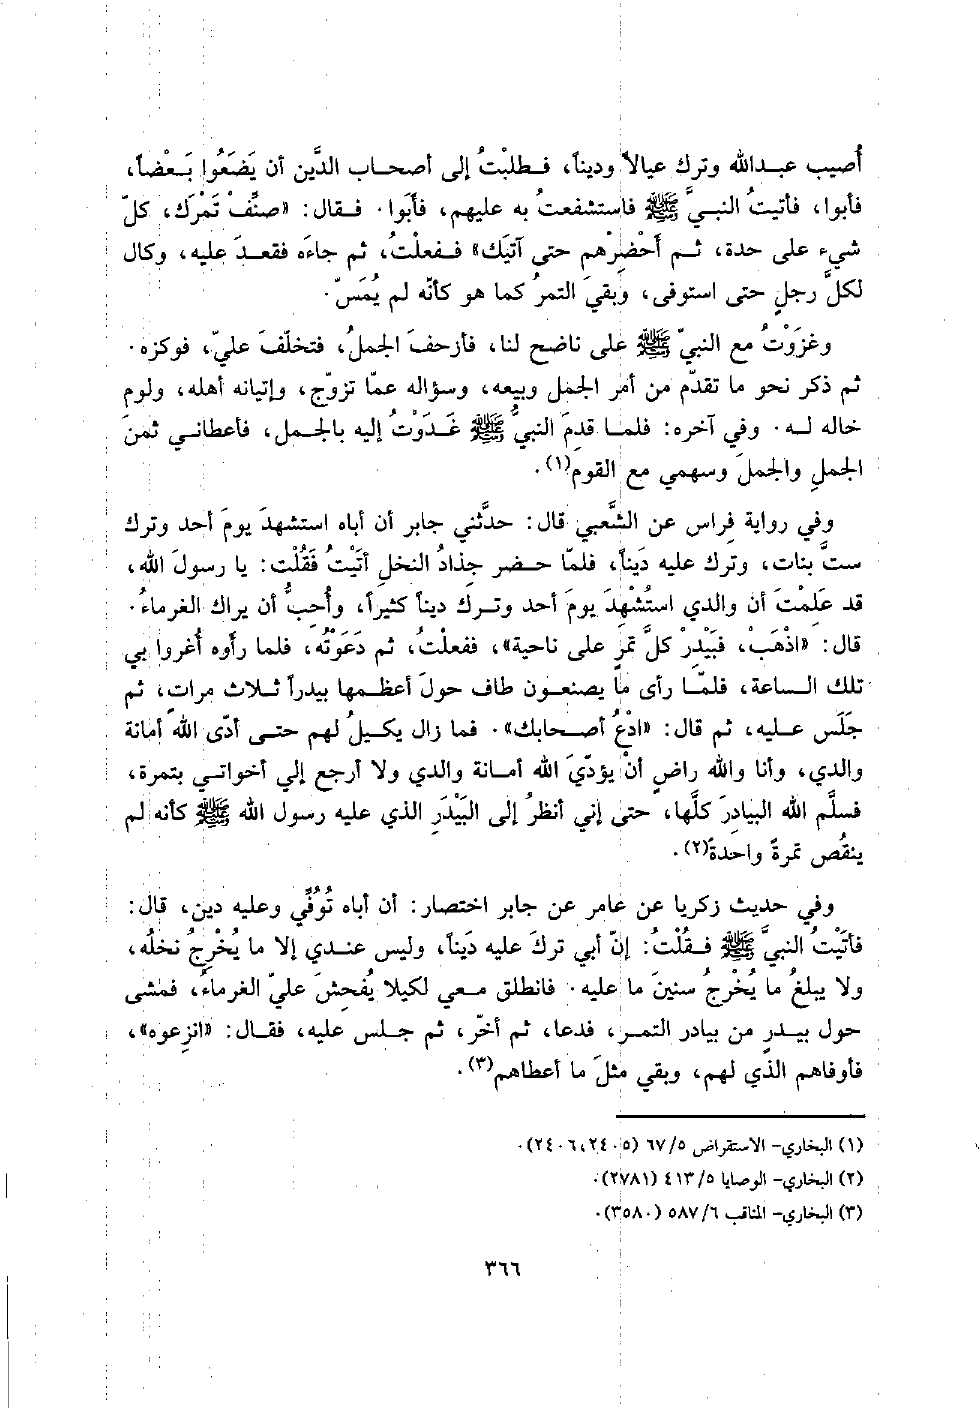 أُصيب عبدالله وترك عيالاً وديناً، فطلبْتُ إلى أصحاب الدَّين أن يَضَعُوا بَعْضاً،
فأبوا، فأتيتُ النبيَّ ﷺ فاستشفعتُ به عليهم، فأبَوا. فقال: «صنِّفْ تَمْرَك، كلّ
شيء على حدة، ثم أَحْضِرْهم حتى آتيَك» ففعلْتُ، ثم جاءَه فقعدَ عليه، وكال
لكلِّ رجلٍ حتى استوفى، وبقيَ التمرُ كما هو كأنّه لم يُمَسّ.
وغزَوْتُ مع النبيّ ﷺ على ناضح لنا، فأزحفَ الجملُ، فتخلّفَ عليّ، فوكزه.
ثم ذكر نحو ما تقدّم من أمر الجمل وبيعه، وسؤاله عمّا تزوّج، وإتيانه أهله، ولوم
خاله له. وفي آخره: فلما قدِمَ النبيُّ ﷺ غَدَوْتُ إليه بالجمل، فأعطاني ثمنَ
الجملِ والجملَ وسهمي مع القوم(١).
وفي رواية فِراس عن الشَّعبي قال: حدَّثني جابر أن أباه استشهدَ يومَ أحد وترك
ستَّ بنات، وترك عليه دَيناً، فلمّا حضر جِذاذُ النخلِ أتَيْتُ فَقُلْت: يا رسولَ الله،
قد عَلِمْتَ أن والدي استُشْهِدَ يومَ أحد وترك ديناً كثيراً، وأُحِبُّ أن يراك الغرماءُ.
قال: «اذْهَبْ، فَبَيْدِرْ كلَّ تمرٍ على ناحية»، ففعلْتُ، ثم دَعَوْتُه، فلما رأَوه أُغروا بي
تلك الساعة، فلمّا رأى ما يصنعون طاف حولَ أعظمها بيدراً ثلاث مرات، ثم
جَلَس عليه، ثم قال: «ادْعُ أصحابك». فما زال يكيلُ لهم حتى أدّى اللهُ أمانة
والدي، وأنا واللهِ راضٍ أنْ يؤدّيَ الله أمانة والدي ولا أرجع إلي أخواتي بتمرة،
فسلَّم الله البيادرَ كلَّها، حتى إني أنظرُ إلى البَيْدَرِ الذي عليه رسول الله ﷺ كأنه لم
ينقُص تمرةً واحدةً(٢).
وفي حديث زكريا عن عامر عن جابر اختصار: أن أباه تُوُفِّي وعليه دين، قال:
فأتَيْتُ النبيَّ ﷺ فقلْتُ: إنّ أبي تركَ عليه دَيناً، وليس عندي إلا ما يُخْرِجُ نخلُه،
ولا يبلغُ ما يُخْرِجُ سنينَ ما عليه. فانطلق معي لكيلا يُفحِشَ عليّ الغرماءُ، فمشى
حول بيدرٍ من بيادر التمر، فدعا، ثم أخّر، ثم جلس عليه، فقال: «انزِعوه»،
فأوفاهم الذي لهم، وبقي مثلَ ما أعطاهم(٣).
(١) البخاري- الاستقراض ٦٧/٥ (٢٤٠٥، ٢٤٠٦).
(٢) البخاري- الوصايا ٤١٣/٥ (٢٧٨١).
(٣) البخاري- المناقب ٥٨٧/٦ (٣٥٨٠).
٣٦٦